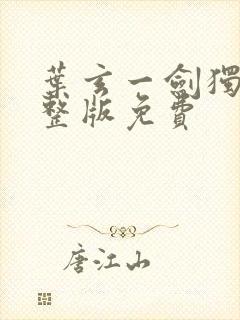 葉玄一劍獨
整版免費
唐江山